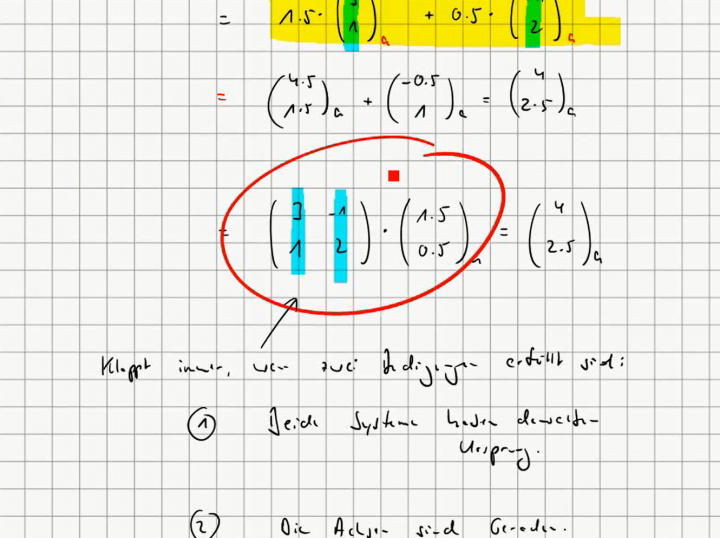 = 1.5 · ( 3 1 )a + 0.5 · ( 2 )a
= ( 4.5 1.5 )a + ( -0.5 1 )a = ( 4 2.5 )a
= ( 3 -1 1 2 ) · ( 1.5 0.5 )a = ( 4 2.5 )a
Klappt immer, wenn zwei Bedingungen erfüllt sind:
① Beide Systeme haben denselben
Ursprung.
② Die Achsen sind Geraden.